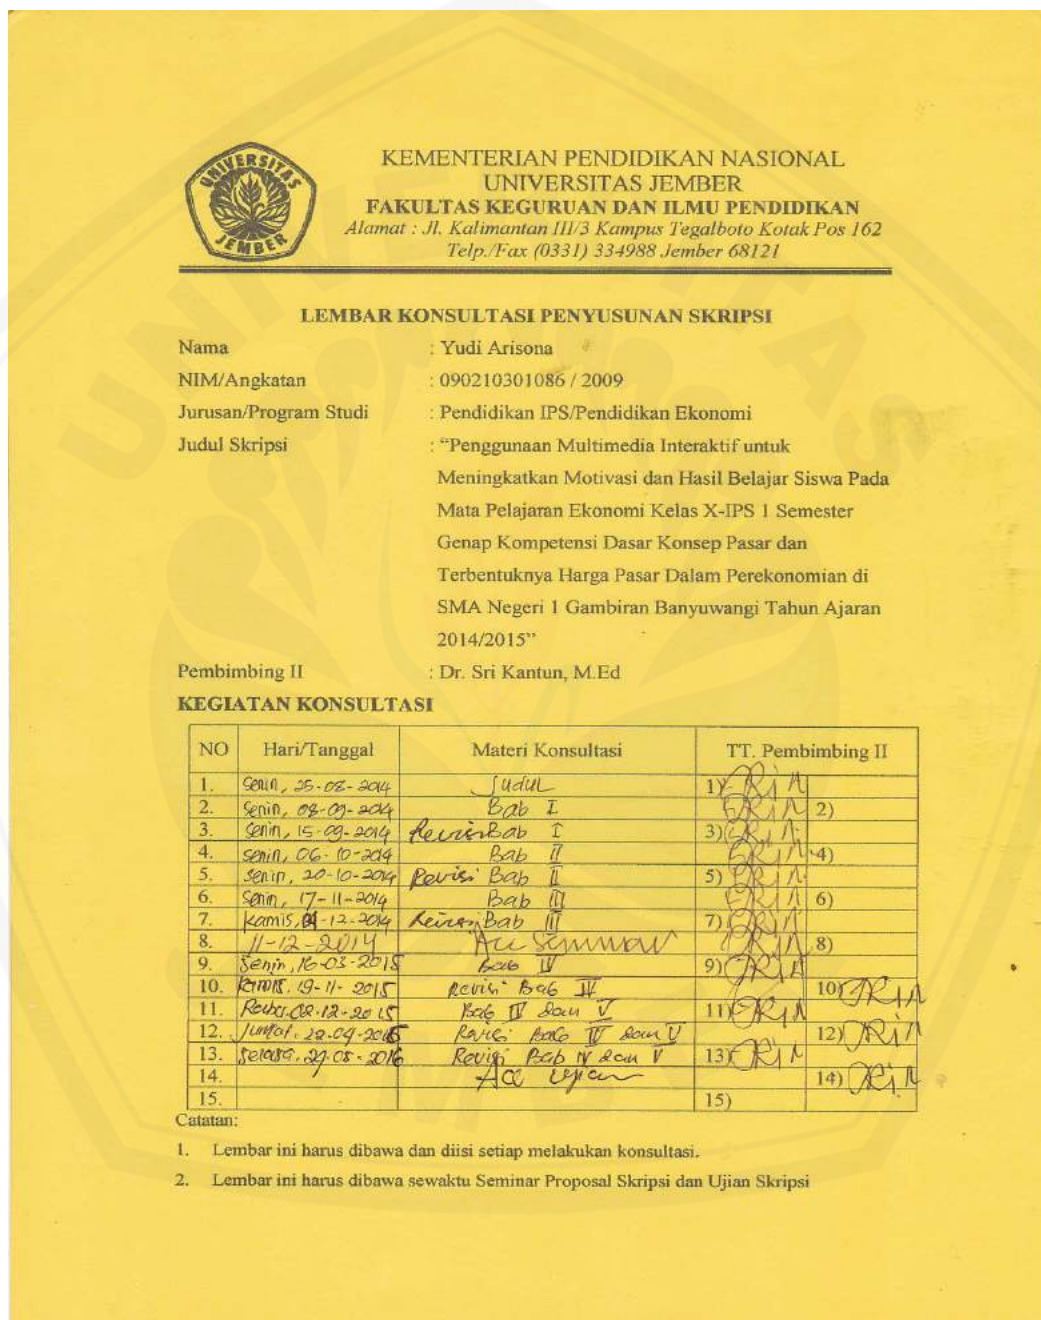 UNIVERSITAS
JEMBER
KEMENTERIAN PENDIDIKAN NASIONAL
UNIVERSITAS JEMBER
FAKULTAS KEGURUAN DAN ILMU PENDIDIKAN
Alamat : Jl. Kalimantan III/3 Kampus Tegalboto Kotak Pos 162
Telp./Fax (0331) 334988 Jember 68121
LEMBAR KONSULTASI PENYUSUNAN SKRIPSI
Nama : Yudi Arisona
NIM/Angkatan : 090210301086 / 2009
Jurusan/Program Studi : Pendidikan IPS/Pendidikan Ekonomi
Judul Skripsi : “Penggunaan Multimedia Interaktif untuk
Meningkatkan Motivasi dan Hasil Belajar Siswa Pada
Mata Pelajaran Ekonomi Kelas X-IPS 1 Semester
Genap Kompetensi Dasar Konsep Pasar dan
Terbentuknya Harga Pasar Dalam Perekonomian di
SMA Negeri 1 Gambiran Banyuwangi Tahun Ajaran
2014/2015”
Pembimbing II : Dr. Sri Kantun, M.Ed
KEGIATAN KONSULTASI
NO Hari/Tanggal Materi Konsultasi TT. Pembimbing II
1. Senin, 25-08-2014 Judul 1)
2. Senin, 08-09-2014 Bab I 2)
3. Senin, 15-09-2014 Revisi Bab I 3)
4. Senin, 06-10-2014 Bab II 4)
5. Senin, 20-10-2014 Revisi Bab II 5)
6. Senin, 17-11-2014 Bab III 6)
7. Kamis, -12-2014 Revisi Bab III 7)
8. 11-12-2014 Acc Seminar 8)
9. Senin, 16-03-2015 Bab IV 9)
10. Kamis, 19-11-2015 Revisi Bab IV 10)
11. Rabu, 02-12-2015 Bab IV dan V 11)
12. Jumat, 22-04-2016 Revisi Bab IV dan V 12)
13. Selasa, -05-2016 Revisi Bab IV dan V 13)
14. Acc ujian 14)
15. 15)
Catatan:
1. Lembar ini harus dibawa dan diisi setiap melakukan konsultasi.
2. Lembar ini harus dibawa sewaktu Seminar Proposal Skripsi dan Ujian Skripsi